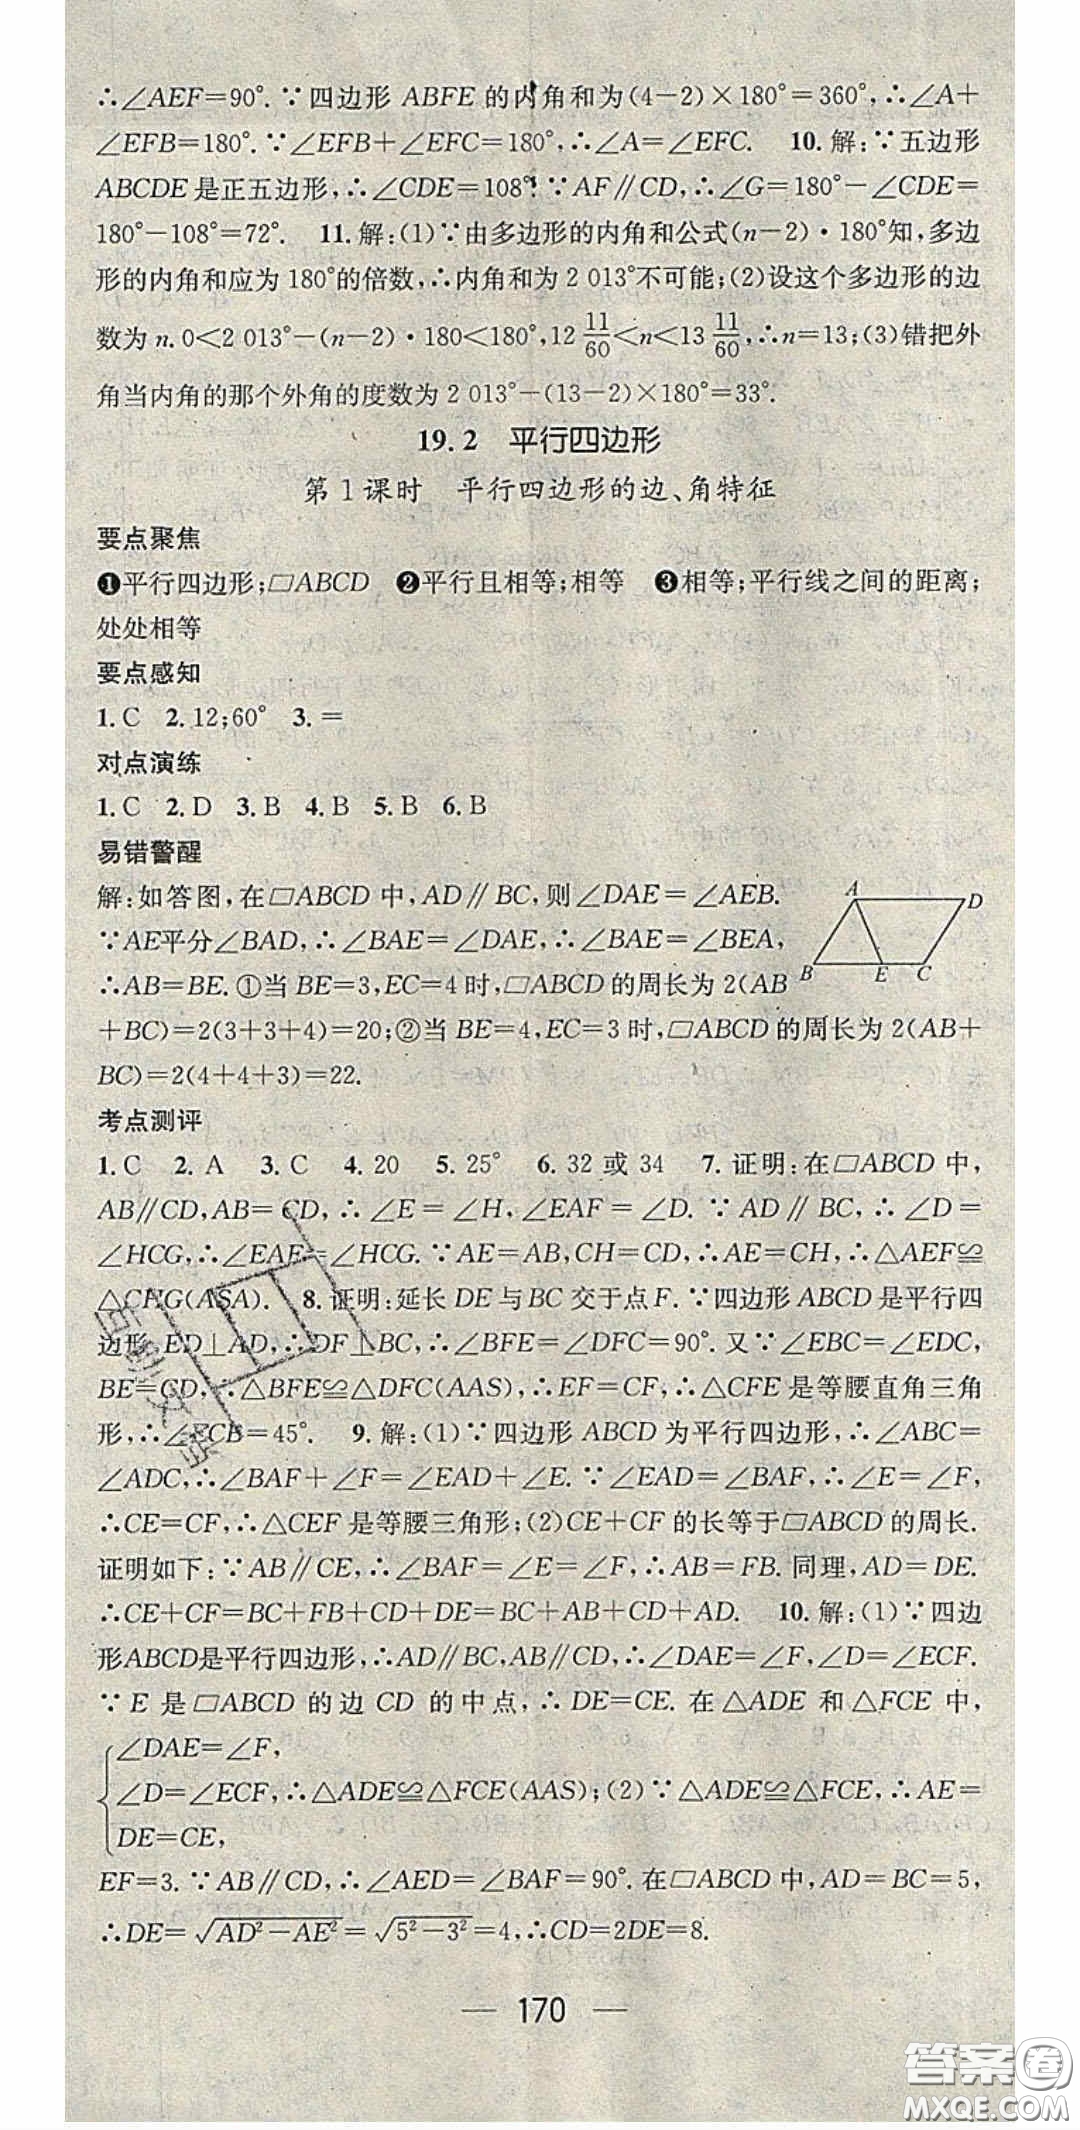 ∴∠AEF=90°.∵四边形 ABFE 的内角和为(4-2)×180°=360°,∴∠A+
∠EFB=180°.∵∠EFB+∠EFC=180°,∴∠A=∠EFC. 10.解:∵五边形
ABCDE 是正五边形,∴∠CDE=108°.∵AF∥CD,∴∠G=180°-∠CDE=
180°-108°=72°. 11.解:(1)∵由多边形的内角和公式(n-2)·180°知,多边
形的内角和应为 180°的倍数,∴内角和为 2 013°不可能;(2)设这个多边形的边
数为 n.0<2 013°-(n-2)·180<180°,12 11/60<n<13 11/60,∴n=13;(3)错把外
角当内角的那个外角的度数为 2 013°-(13-2)×180°=33°.
19.2 平行四边形
第 1 课时 平行四边形的边、角特征
要点聚焦
❶平行四边形;▱ABCD ❷平行且相等;相等 ❸相等;平行线之间的距离;
处处相等
要点感知
1.C 2.12;60° 3.=
对点演练
1.C 2.D 3.B 4.B 5.B 6.B
易错警醒
解:如答图,在▱ABCD 中,AD∥BC,则∠DAE=∠AEB.
∵AE平分∠BAD,∴∠BAE=∠DAE,∴∠BAE=∠BEA,
∴AB=BE.①当 BE=3,EC=4 时,▱ABCD 的周长为 2(AB
+BC)=2(3+3+4)=20;②当 BE=4,EC=3 时,▱ABCD 的周长为 2(AB+
BC)=2(4+4+3)=22.
A D
B E C
考点测评
1.C 2.A 3.C 4.20 5.25° 6.32 或 34 7.证明:在▱ABCD 中,
AB∥CD,AB=CD,∴∠E=∠H,∠EAF=∠D.∵AD∥BC,∴∠D=
∠HCG,∴∠EAF=∠HCG.∵AE=AB,CH=CD,∴AE=CH,∴△AEF≌
△CHG(ASA). 8.证明:延长 DE 与 BC 交于点 F.∵四边形 ABCD 是平行四
边形,ED⊥AD,∴DF⊥BC,∴∠BFE=∠DFC=90°.又∵∠EBC=∠EDC,
BE=CD,∴△BFE≌△DFC(AAS),∴EF=CF,∴△CFE 是等腰直角三角
形,∴∠ECB=45°. 9.解:(1)∵四边形 ABCD 为平行四边形,∴∠ABC=
∠ADC,∴∠BAF+∠F=∠EAD+∠E.∵∠EAD=∠BAF,∴∠E=∠F,
∴CE=CF,∴△CEF 是等腰三角形;(2)CE+CF 的长等于▱ABCD 的周长.
证明如下:∵AB∥CE,∴∠BAF=∠E=∠F,∴AB=FB.同理,AD=DE.
∴CE+CF=BC+FB+CD+DE=BC+AB+CD+AD. 10.解:(1)∵四边
形ABCD是平行四边形,∴AD∥BC,AB∥CD,∴∠DAE=∠F,∠D=∠ECF.
∵E 是▱ABCD 的边 CD 的中点,∴DE=CE.在△ADE 和△FCE 中,
∠DAE=∠F,
∠D=∠ECF,∴△ADE≌△FCE(AAS);(2)∵△ADE≌△FCE,∴AE=
DE=CE,
EF=3.∵AB∥CD,∴∠AED=∠BAF=90°.在▱ABCD 中,AD=BC=5,
∴DE=√(AD²-AE²)=√(5²-3²)=4,∴CD=2DE=8.
— 170 —
答案卷
MXQE.COM